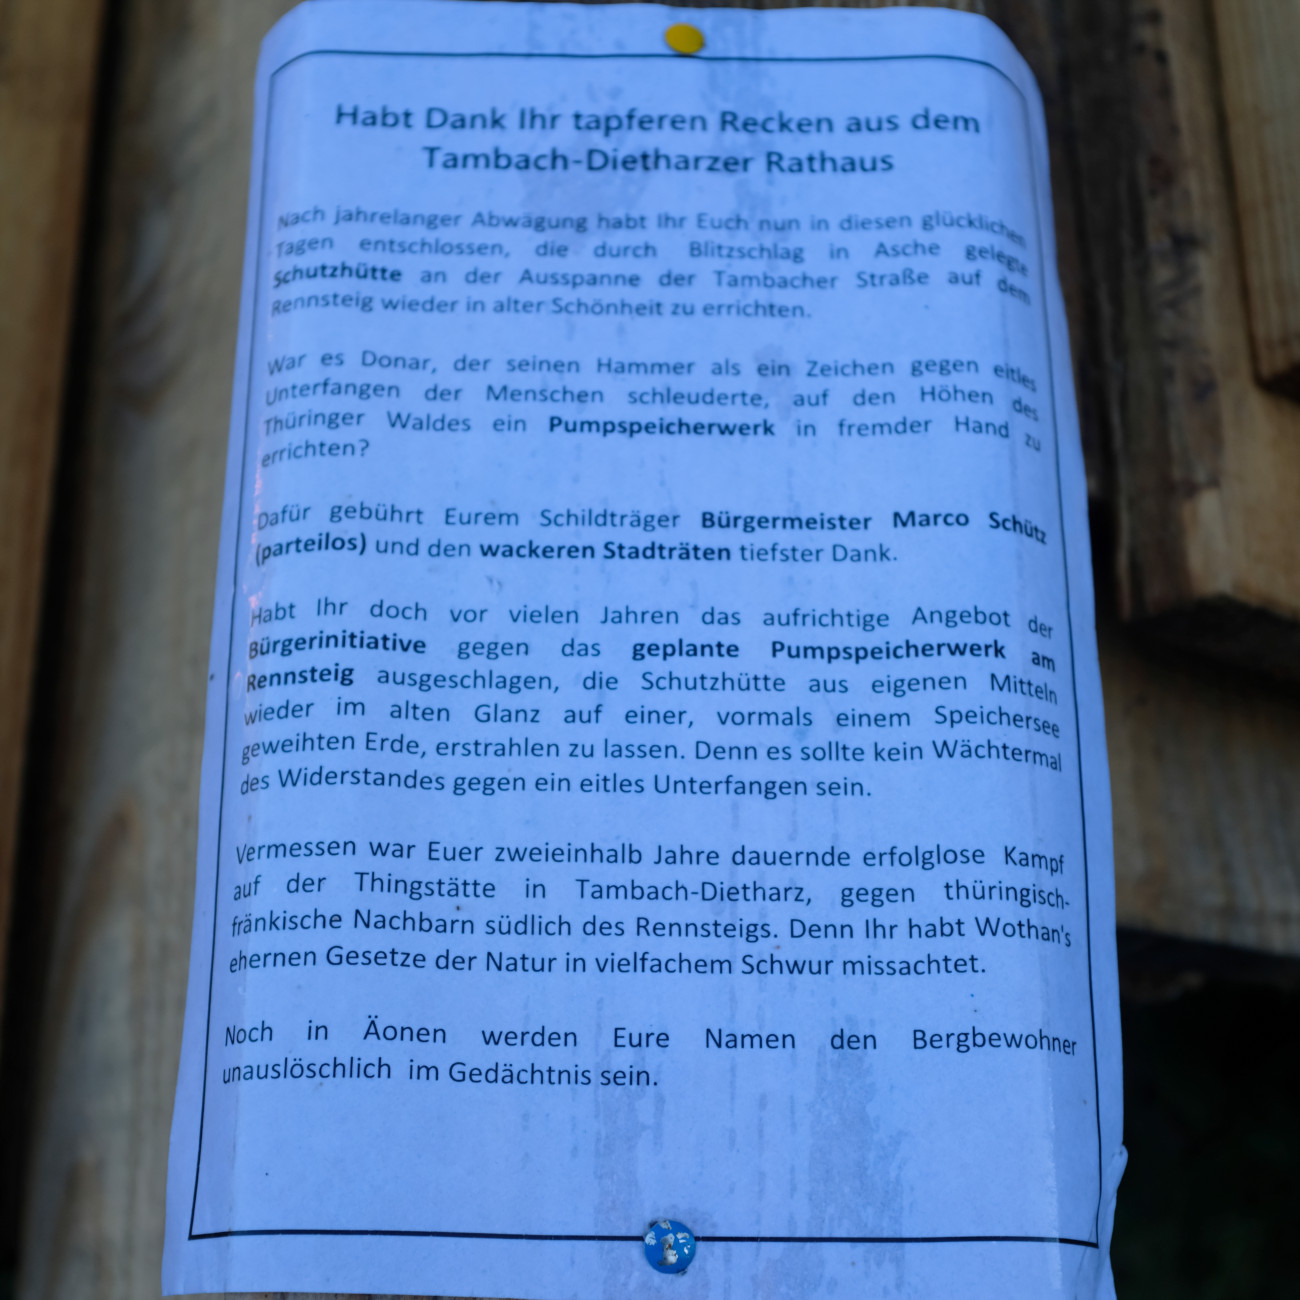 Habt Dank Ihr tapferen Recken aus dem
Tambach-Dietharzer Rathaus
Nach jahrelanger Abwägung habt Ihr Euch nun in diesen glücklichen
Tagen entschlossen, die durch Blitzschlag in Asche gelegte
Schutzhütte an der Ausspanne der Tambacher Straße auf dem
Rennsteig wieder in alter Schönheit zu errichten.
War es Donar, der seinen Hammer als ein Zeichen gegen eitles
Unterfangen der Menschen schleuderte, auf den Höhen des
Thüringer Waldes ein Pumpspeicherwerk in fremder Hand zu
errichten?
Dafür gebührt Eurem Schildträger Bürgermeister Marco Schütz
(parteilos) und den wackeren Stadträten tiefster Dank.
Habt Ihr doch vor vielen Jahren das aufrichtige Angebot der
Bürgerinitiative gegen das geplante Pumpspeicherwerk am
Rennsteig ausgeschlagen, die Schutzhütte aus eigenen Mitteln
wieder im alten Glanz auf einer, vormals einem Speichersee
geweihten Erde, erstrahlen zu lassen. Denn es sollte kein Wächtermal
des Widerstandes gegen ein eitles Unterfangen sein.
Vermessen war Euer zweieinhalb Jahre dauernde erfolglose Kampf
auf der Thingstätte in Tambach-Dietharz, gegen thüringisch-
fränkische Nachbarn südlich des Rennsteigs. Denn Ihr habt Wothan's
ehernen Gesetze der Natur in vielfachem Schwur missachtet.
Noch in Äonen werden Eure Namen den Bergbewohner
unauslöschlich im Gedächtnis sein.